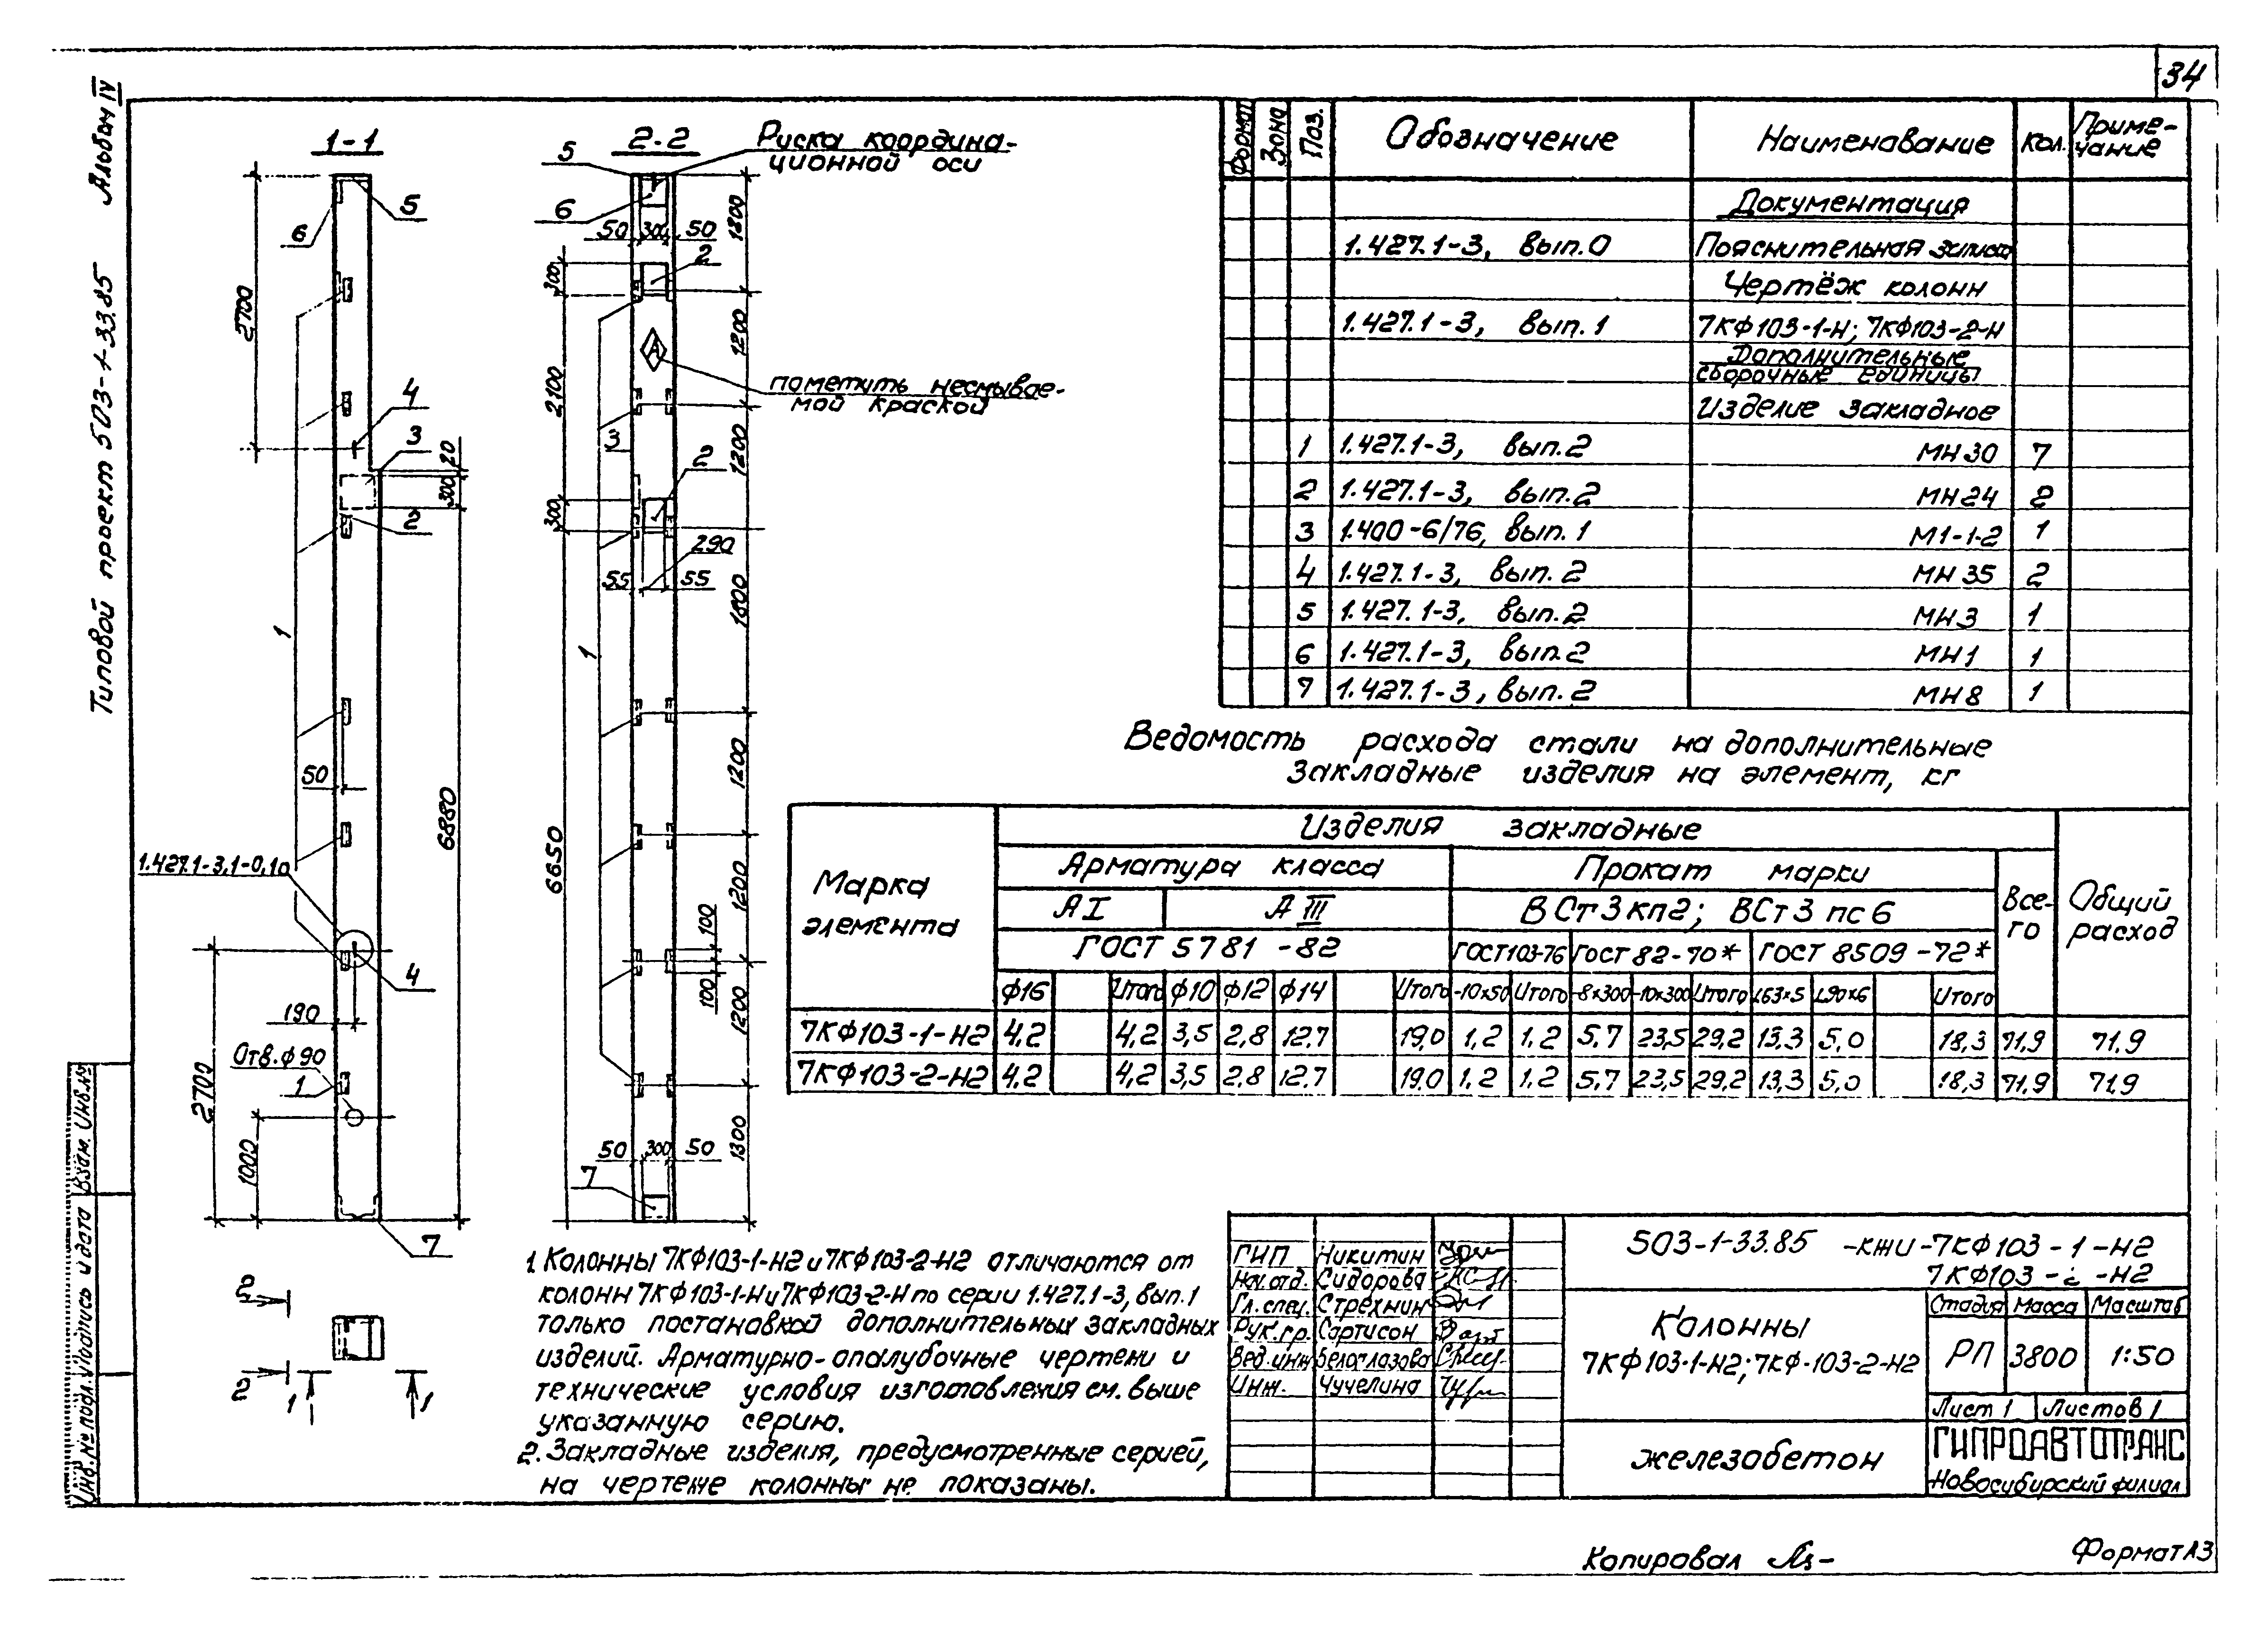 34
Типовой проект 503-1-33.85 Альбом IV
1-1
2-2
Риска координа-
ционной оси
5
6
5
6
50 300 50
2
1200
300
2700
1200
А
пометить несмывае-
мой краской
2100
4
3
3
20
300
2
2
1200
300
290
55 55
1800
1
1
1200
50
6880
6650
1.427.1-3,1-0,10
1200
100
100
4
190
1200
Отв.ф90
1
2700
1000
50 300 50
1300
7
7
2
2
1 1
Формат
Зона
Поз.
Обозначение
Наименование
Кол.
Приме-
чание
Документация
1.427.1-3, вып.0 Пояснительная записка
Чертёж колонн
1.427.1-3, вып.1 7КФ103-1-Н; 7КФ103-2-Н
Дополнительные
сборочные единицы
Изделие закладное
1 1.427.1-3, вып.2 МН30 7
2 1.427.1-3, вып.2 МН24 2
3 1.400-6/76, вып.1 М1-1-2 1
4 1.427.1-3, вып.2 МН35 2
5 1.427.1-3, вып.2 МН3 1
6 1.427.1-3, вып.2 МН1 1
7 1.427.1-3, вып.2 МН8 1
Ведомость расхода стали на дополнительные
закладные изделия на элемент, кг
Марка
элемента
Изделия закладные
Арматура класса
Прокат марки
Все-
го
Общий
расход
АI АIII ВСт3кп2; ВСт3пс6
ГОСТ 5781-82 ГОСТ103-76 ГОСТ 82-70* ГОСТ 8509-72*
ф16 Итого ф10 ф12 ф14 Итого -10х50 Итого -8х300 -10х300 Итого L63х5 L90х6 Итого
7КФ103-1-Н2 4,2 4,2 3,5 2,8 12.7 19,0 1,2 1,2 5,7 23,5 29,2 13,3 5,0 18,3 71,9 71,9
7КФ103-2-Н2 4,2 4,2 3,5 2,8 12.7 19.0 1,2 1,2 5,7 23,5 29,2 13,3 5,0 18,3 71,9 71,9
1. Колонны 7КФ103-1-Н2 и 7КФ103-2-Н2 отличаются от
колонн 7КФ103-1-Н и 7КФ103-2-Н по серии 1.427.1-3, вып.1
только постановкой дополнительных закладных
изделий. Арматурно-опалубочные чертежи и
технические условия изготовления см. выше
указанную серию.
2. Закладные изделия, предусмотренные серией,
на чертеже колонны не показаны.
503-1-33.85 -КЖИ-7КФ103-1-Н2
7КФ103- -Н2
ГИП Никитин
Нач.отд. Сидорова
Гл.спец. Стрехнин
Рук.гр. Сартисон
Вед.инж Белоглазова
Инж. Чучелина
Колонны
7КФ103-1-Н2; 7КФ-103-2-Н2
Стадия Масса Масштаб
РП 3800 1:50
Лист 1 Листов 1
железобетон
ГИПРОАВТОТРАНС
Новосибирский филиал
Инв.№ подл. Подпись и дата Взам. Инв.№
Копировал
Формат А3